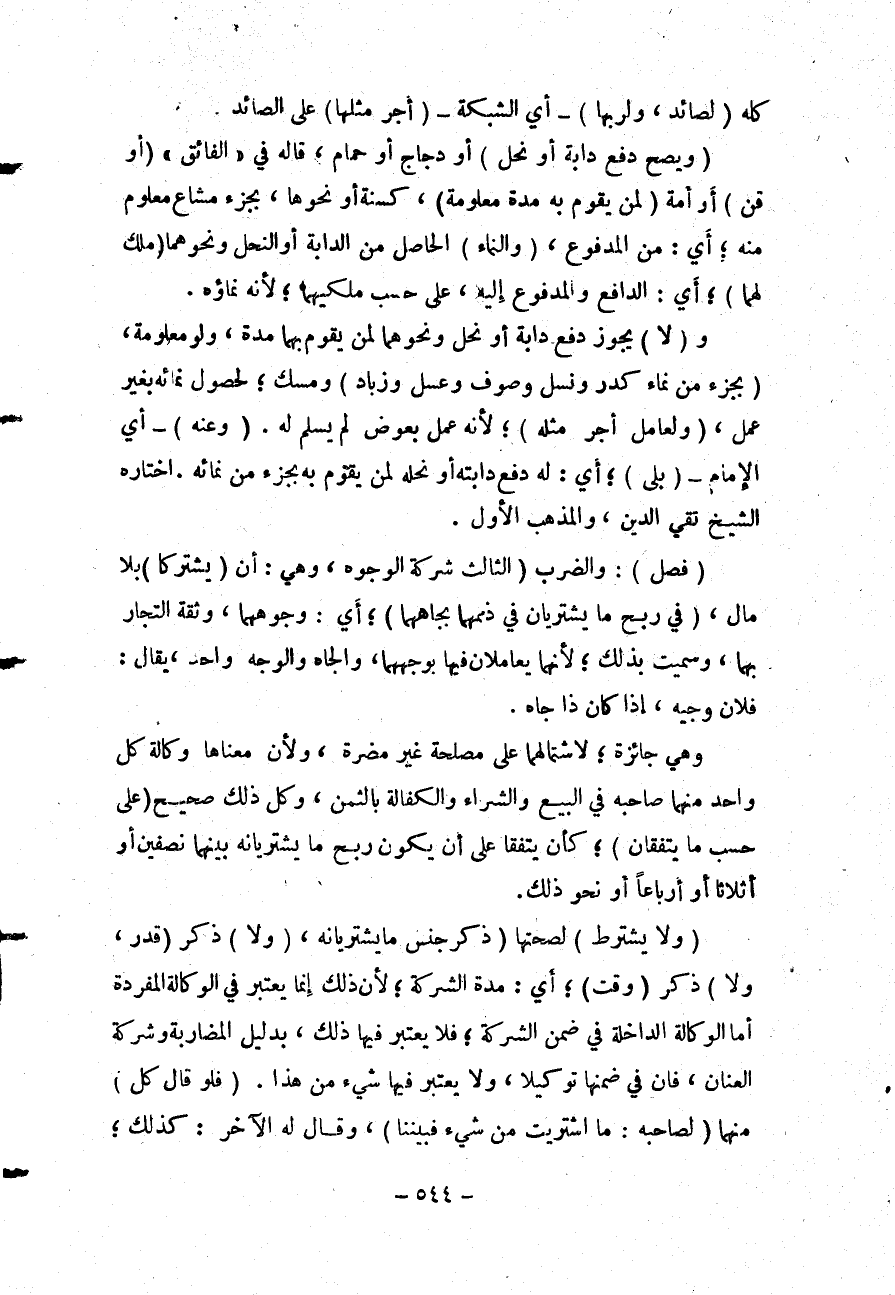 كله ( لصائد ، ولربها ) – أي الشبكة – ( أجر مثلها ) على الصائد .
( ويصح دفع دابة أو نحل ) أو دجاج أو حمام ، قاله في « الفائق » (أو
قن ) أو أمة ( لمن يقوم به مدة معلومة) ، كسنة أو نحوها ، بجزء مشاع معلوم
منه ؛ أي : من المدفوع ، ( والنماء ) الحاصل من الدابة أو النحل ونحوهما (ملك
لهما ) ؛ أي : الدافع والمدفوع إليه ، على حسب ملكيهما ؛ لأنه نماؤه .
و ( لا ) يجوز دفع دابة أو نحل ونحوهما لمن يقوم بها مدة ، ولو معلومة،
( بجزء من نماء كدر ونسل وصوف وعسل وزباد ) ومسك ؛ لحصول نمائه بغير
عمل ، ( ولعامل أجر مثله ) ؛ لأنه عمل بعوض لم يسلم له . ( وعنه ) – أي
الإمام – ( بلى ) ؛ أي : له دفع دابته أو نحله لمن يقوم به بجزء من نمائه . اختاره
الشيخ تقي الدين ، والمذهب الأول .
( فصل ) : والضرب ( الثالث شركة الوجوه ، وهي : أن ( يشتركا ) بلا
مال ، ( في ربح ما يشتريان في ذممهما بجاههما ) ؛ أي : وجوههما ، وثقة التجار
بهما ، وسميت بذلك ؛ لأنهما يعاملان فيها بوجههما، والجاه والوجه واحد ، يقال :
فلان وجيه ، اذا كان ذا جاه .
وهي جائزة ؛ لاشتمالها على مصلحة غير مضرة ، ولأن معناها وكالة كل
واحد منهما صاحبه في البيع والشراء والكفالة بالثمن ، وكل ذلك صحيح (على
حسب ما يتفقان ) ؛ كأن يتفقا على أن يكون ربح ما يشتريانه بينهما نصفين أو
أثلاثا أو أرباعاً أو نحو ذلك .
( ولا يشترط ) لصحتها ( ذكر جنس ما يشتريانه ، ( ولا ) ذكر (قدر ،
ولا ) ذكر ( وقت) ؛ أي : مدة الشركة ؛ لأن ذلك إنما يعتبر في الوكالة المفردة
أما الوكالة الداخلة في ضمن الشركة ؛ فلا يعتبر فيها ذلك ، بدليل المضاربة وشركة
العنان ، فان في ضمنها توكيلا ، ولا يعتبر فيها شيء من هذا . ( فلو قال كل )
منهما ( لصاحبه : ما اشتريت من شيء فبيننا ) ، وقال له الآخر : كذلك ؛
– ٥٤٤ –